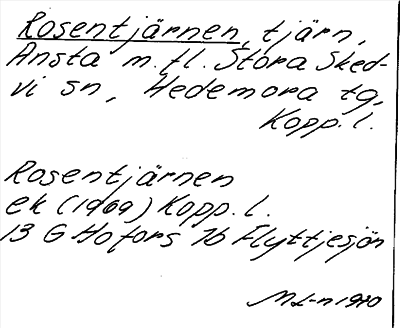 Rosentjärnen, tjärn,
Ansta m. fl. Stora Sked-
vi sn, Hedemora tg,
Kopp. l.
Rosentjärnen
ek (1969) Kopp. l.
13 G Hofors 7b Flyttjesjön
ML-n 1970